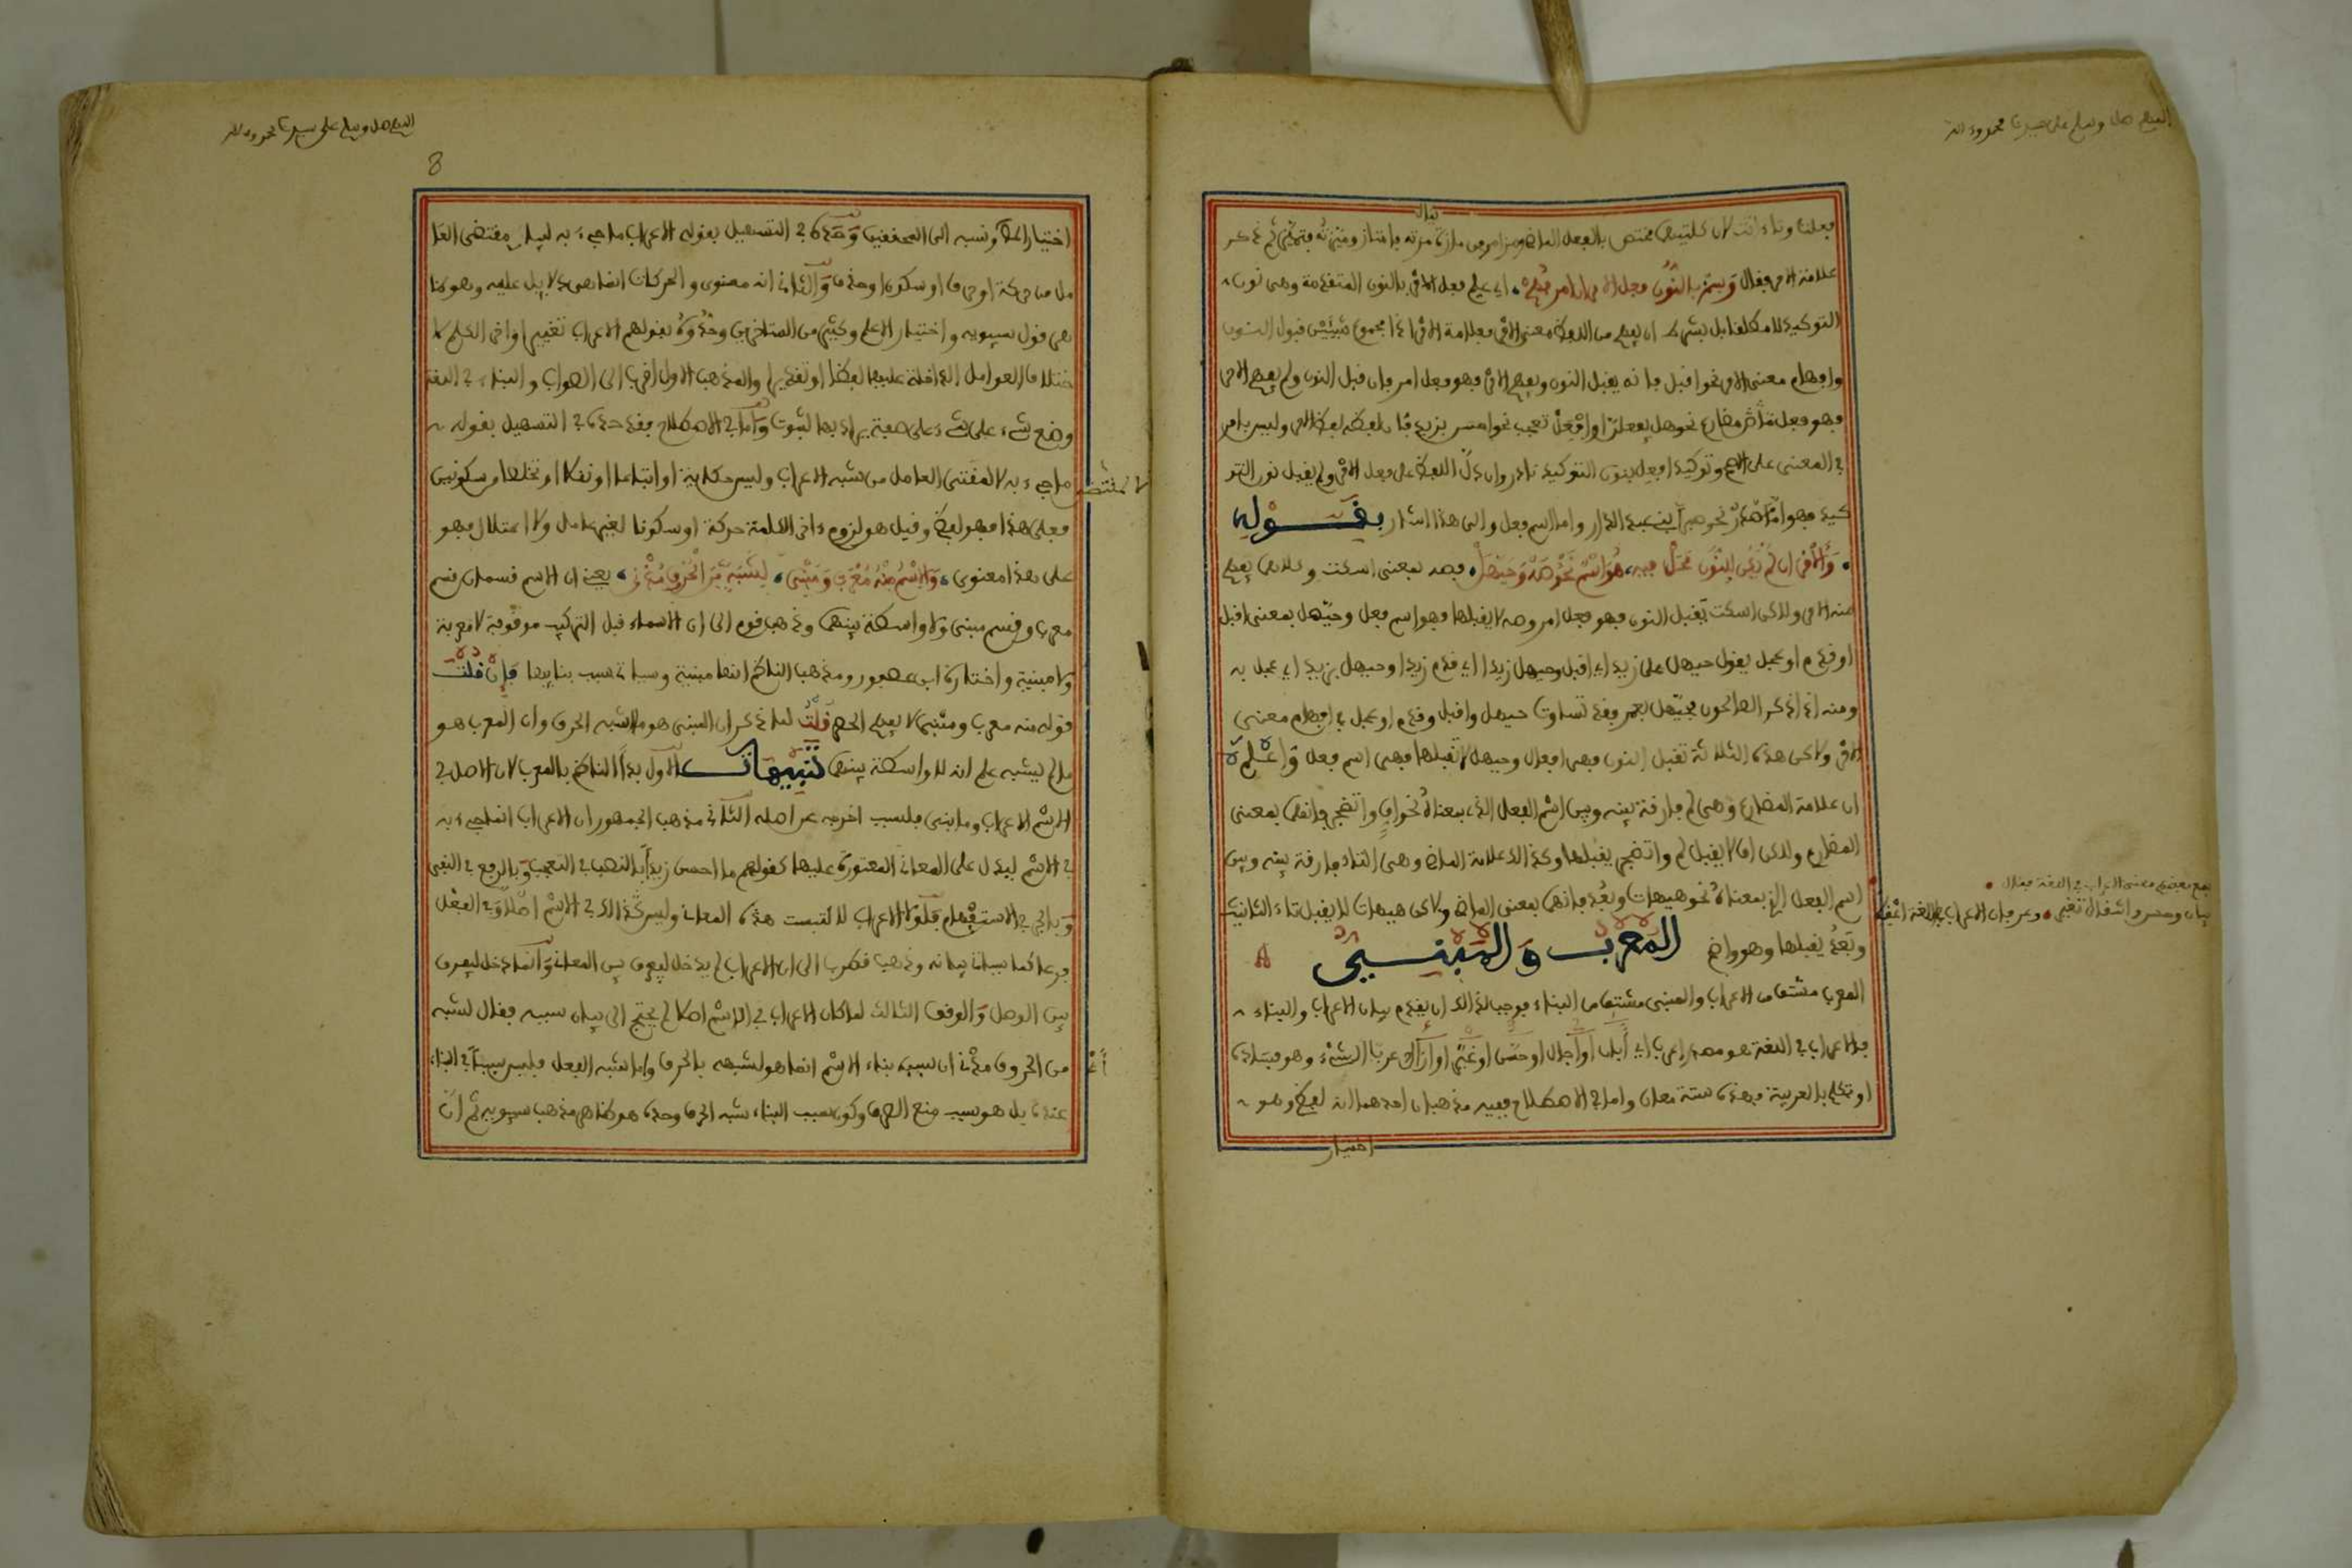 اللهم صل وسلم على سيدنا محمد وءاله
فعلت وتاء أتت لان كلتيهما مختص بالفعل الماضي ومز امر من مازه يقال مزته فامتاز وميزته فتميز ثم ذكر
علامة الامر فقال وسم بالنون فعل الامر ان امر فهم، اي علم فعل الامر بالنون المتقدمة وهي نون
التوكيد للامر كالقابل بشرط ان يفهم من اللفظ معنى الامر فعلامة الامر اذا مجموع شيئين قبول النون
وافهام معنى الامر نحو اقبل فانه يقبل النون ويفهم الامر فهو فعل امر فان قبل النون ولم يفهم الامر
فهو فعل مضارع نحو هل يفعلن او افعل تعجب نحو احسن بزيد فان لفظه لفظ الامر وليس بامر
في المعنى على الاصح وتوكيد افعل بنون التوكيد نادر وان دل اللفظ على فعل الامر ولم يقبل نون التو
كيد فهو اما مصدر نحو صبرا بني عبد الدار واما اسم فعل والى هذا اشار بقوله
والامر ان لم يك للنون محل فيه، هو اسم نحو صه وحيهل، فصه بمعنى اسكت وكلاهما يفهم
منه الامر ولاكن اسكت يقبل النون فهو فعل امر وصه لا يقبلها فهو اسم فعل وحيهل بمعنى اقبل
او قدم او عجل يقول حيهل على زيد اي اقبل وحيهل زيدا اي قدم زيدا وحيهل بزيد اي عجل به
ومنه اذا ذكر الصالحون فحيهل بعمر فقد تساوت حيهل واقبل وقدم او عجل في افهام معنى
الامر ولاكن هذه الثلاثة تقبل النون فهي افعال وحيهل لا تقبلها فهي اسم فعل واعلم
ان علامة المضارع وهي لم فارقة بينه وبين اسم الفعل الذي بمعناه نحو اف واتضجر فانهما بمعنى
المضارع ولاكن اف لا يقبل لم واتضجر يقبلها وكذالك علامة الماضي وهي التاء فارقة بينه وبين
اسم الفعل الذي بمعناه نحو هيهات وبعد فانهما بمعنى الماضي ولاكن هيهات لا يقبل تاء التانيث
وبعد يقبلها وهو واضح المعرب والمبني
المعرب مشتق من الاعراب والمبني مشتق من البناء فوجب لذالك ان يقدم بيان الاعراب والبناء
فالاعراب في اللغة هو مصدر اعرب اي أبان أو أجال او حسن او غير او أزال عرب الشيء وهو فساده
او تكلم بالعربية فهذه ستة معان واما في الاصطلاح ففيه مذهبان احدهما انه لفظي وهو
اختيار
اللهم صل وسلم على سيدنا محمد وءاله
8
اختيار الناظم ونسبه الى المحققين وحده في التسهيل بقوله الاعراب ما جيء به لبيان مقتضى العا
مل من حركة او حرف او سكون او حذف والثاني انه معنوي والحركات انما هي دلايل عليه وهو ظا
هر قول سيبويه واختيار الاعلم وكثير من المتاخرين وحدوه بقولهم الاعراب تغيير اواخر الكلم لا
ختلاف العوامل الداخلة عليها لفظا او تقديرا والمذهب الاول اقرب الى الصواب والبناء في اللغة
وضع شيء على شيء على صفة يراد بها الثبوت واما في الاصطلاح فقد حده في التسهيل بقوله
ما جيء به لا لمقتضى العامل من شبه الاعراب وليس حكاية او اتباعا او نقلا او تخلصا من سكونين
فعلى هذا فهو لفظي وقيل هو لزوم ءاخر الكلمة حركة او سكونا لغير عامل ولا اعتلال فهو
على هذا معنوي، والاسم منه معرب ومبني، لشبه من الحروف مدني، يعني ان الاسم قسمان قسم
معرب وقسم مبني ولا واسطة بينهما وذهب قوم الى ان الاسماء قبل التركيب موقوفة لا معربة
ولا مبنية واختاره ابن عصفور ومذهب الناظم انها مبنية وسياتي سبب بنايها فإن قلت
قوله منه معرب ومبني لا يفهم الحصر قلت لما ذكر ان المبني هو ما اشبه الحرف وان المعرب هو
ما لم يشبه علم انه لا واسطة بينهما تنبيهات الاول بدأ الناظم بالمعرب لان الاصل في
الاسم الاعراب وما بني فلسبب اخرجه عن اصله الثاني مذهب الجمهور ان الاعراب انما جيء به
في الاسم ليدل على المعاني المعتورة عليها كقولهم ما احسن زيدا بالنصب في التعجب وبالرفع في النفي
وبالجر في الاستفهام فلولا الاعراب لالتبست هذه المعاني وليس كذالك في الاسم اصلا وفي الفعل
فرعا كما سياتي بيانه وذهب قطرب الى ان الاعراب لم يدخل ليفرق بين المعاني وانما دخل ليفرق
بين الوصل والوقف الثالث لما كان الاعراب في الاسم اصلا لم يحتج الى بيان سببه فقال لشبه
من الحروف مدني ان سبب بناء الاسم انما هو لشبهه بالحرف واما شبه الفعل فليس سببا في البناء
عنده بل هو سبب منع الصرف وكون سبب البناء شبه الحرف وحده هو ظاهر مذهب سيبويه ثم ان